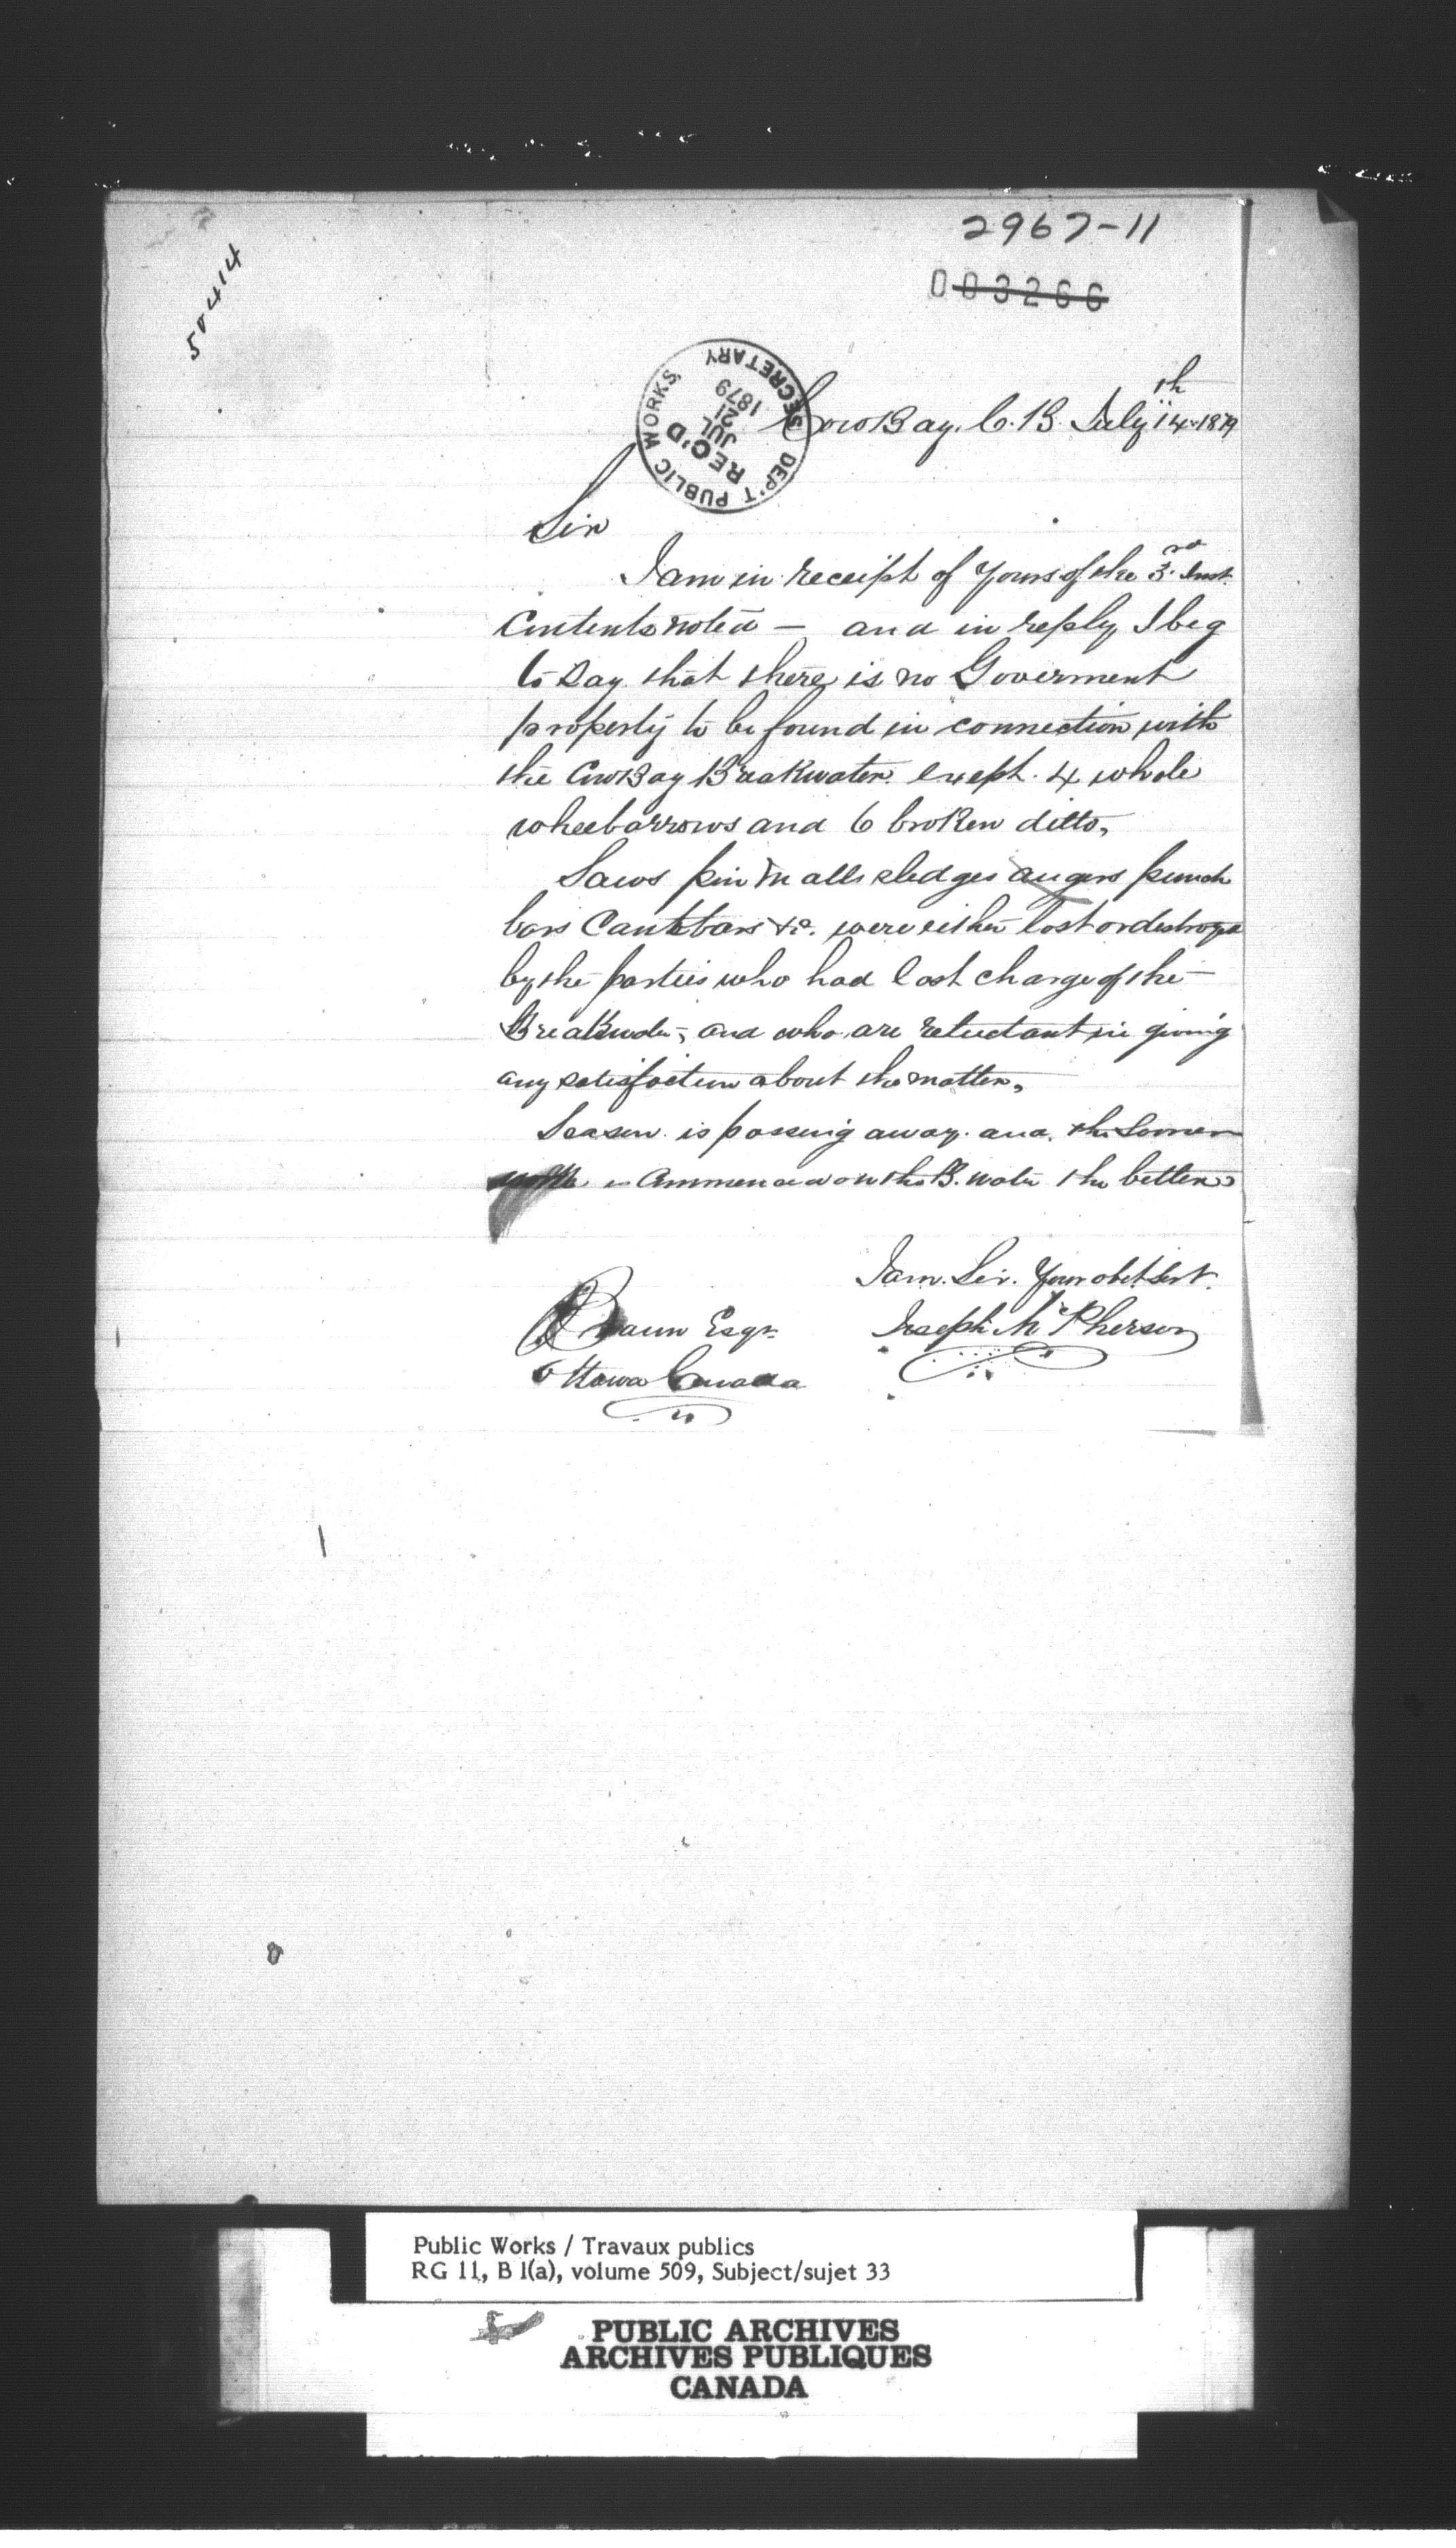 2967-11
003266
50414
DEP'T PUBLIC WORKS
SECRETARY
REC'D
JUL
21
1879
Cow Bay. C.B. July 14th 1879
Sir
I am in receipt of Yours of the 3rd Inst.
Contents noted — and in reply I beg
to say that there is no Goverment
property to be found in connection with
the Cow Bay Breakwater. except. 4 whole
wheebarrows and 6 broken ditto,
Saws pin malls sledges augers punch
bars Cantbars &c. were either lost or destroyed
by the parties who had last charge of the
Breakwater, and who are reluctant in giving
any satisfaction about the matter,
Season is passing away. and. the Sooner
work is Commenced on the B. water the better
I am. Sir. Your obet Sert.
Joseph McPherson
Braun Esqr.
Ottawa Canada
Public Works / Travaux publics
RG 11, B 1(a), volume 509, Subject/sujet 33
PUBLIC ARCHIVES
ARCHIVES PUBLIQUES
CANADA